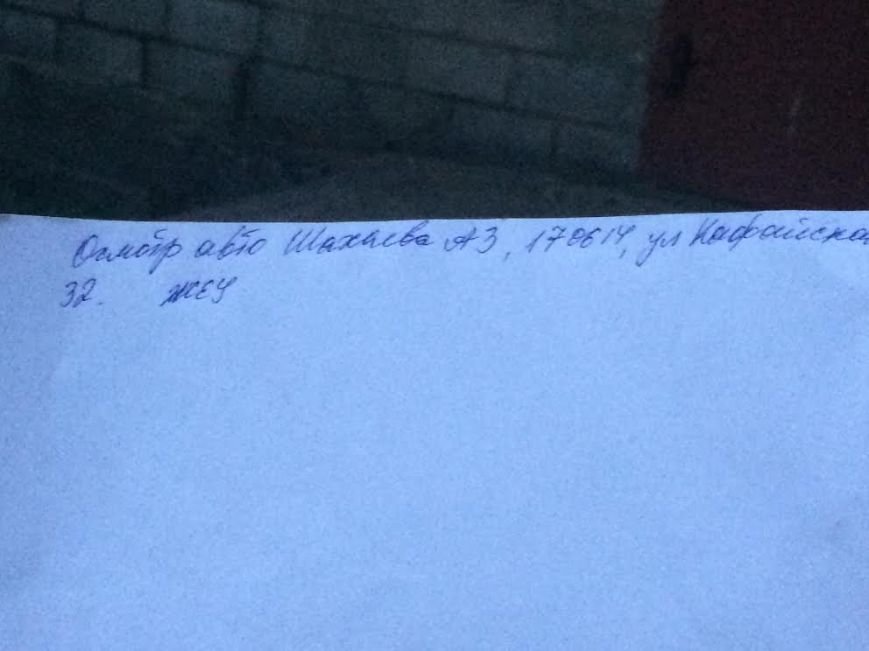 Осмотр авто Шахаева АЗ, 170614, ул Кафайская
32. ЖЕУ